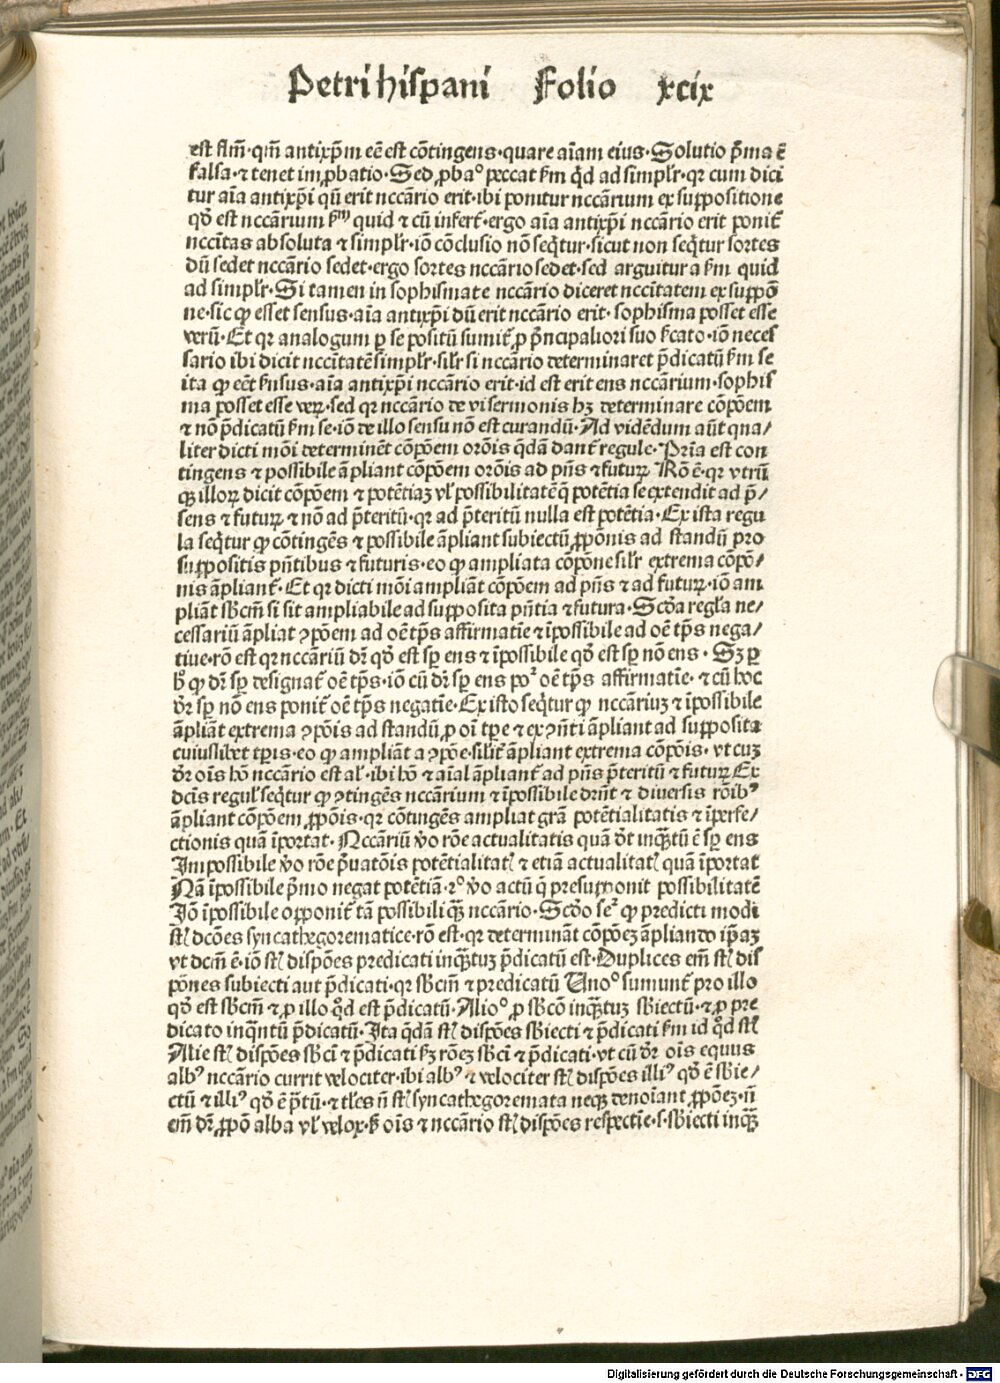 Petri hispani Folio xcix
est flm̄·qm̄ antixp̄m eē est cōtingens·quare aīam eius·Solutio p̄ma ē
falsa·⁊ tenet improbatio·Sed ꝓbaº peccat ẜm qd̄ ad simplr̄·qꝛ cum dici
tur aīa antixp̄i qn̄ erit nccārio erit·ibi ponitur nccārium ex suppositione
qd̄ est nccārium ẜm quid ⁊ cū infert̄·ergo aīa antixp̄i nccārio erit ponit̄
nccītas absoluta ⁊ simplr̄·iō cōclusio nō seq̄tur·sicut non seq̄tur sortes
dū sedet nccārio sedet·ergo sortes nccārio sedet·sed arguitur a ẜm quid
ad simplr̄·Si tamen in sophismate nccārio diceret nccītatem ex suppōo
ne·sic ꝙ esset sensus·aīa antixp̄i dū erit nccārio erit·sophisma posset esse
verū·Et qꝛ analogum ꝑ se positū sumit̄ ꝓ p̄ncipaliori suo ẜcato·iō neces
sario ibi dicit nccītatē simplr̄·silr̄ si nccārio determinaret p̄dicatū ẜm se
ita ꝙ eēt ẜnsus·aīa antixp̄i nccārio erit·id est erit ens nccārium·sophis
ma posset esse veꝝ·sed qꝛ nccārio de vi sermonis hꝫ determinare cōpōem
⁊ nō p̄dicatū ẜm se·iō de illo sensu nō est curandū·Ad vidēdum aūt qua/
liter dicti mōi determinēt cōpōem orōis qdā dant̄ regule·Prīa est con
tingens ⁊ possibile āpliant cōpōem orōis ad pn̄s ⁊ futuꝝ Rō ē·qꝛ vtrū
qꝫ illoꝝ dicit cōpōem ⁊ potētiaꝫ vl̓ possibilitatē q̄ potētia se extendit ad p̄/
sens ⁊ futuꝝ ⁊ nō ad p̄teritū·qꝛ ad p̄teritū nulla est potētia·Ex ista regu
la seq̄tur ꝙ cōtingēs ⁊ possibile āpliant subiectū ꝓpōnis ad standū pro
suppositis pn̄tibus ⁊ futuris·eo ꝙ ampliata cōpōne silr̄ extrema cōpō/
nis āpliant̄·Et qꝛ dicti mōi ampliāt cōpōem ad pn̄s ⁊ ad futuꝝ·iō am
pliāt sb̄cm̄ si sit ampliabile ad supposita pn̄tia ⁊ futura·Scd̄a regl̓a ne/
cessariū āpliat ꝯpōem ad oē tp̄s affirmatīe ⁊ īpossibile ad oē tp̄s nega/
tiue·rō est qꝛ nccāriū dr̄ qd̄ est sp̄ ens ⁊ īpossibile qd̄ est sp̄ nō ens·Sꝫ ꝑ
h̄ ꝙ dr̄ sp̄ designat̄ oē tp̄s·iō cū dr̄ sp̄ ens poꝰ oē tp̄s affirmatīe·⁊ cū hoc
dr̄ sp̄ nō ens ponit̄ oē tp̄s negatīe·Ex isto seq̄tur ꝙ nccāriuꝫ ⁊ īpossibile
āpliāt extrema ꝯpōis ad standū ꝓ oī tp̄e ⁊ ex ꝯn̄ti āpliant ad supposita
cuiuslibet tp̄is·eo ꝙ ampliāt a ꝯpōe·silit̄ āpliant extrema cōpōis·vt cuꝫ
dr̄ oīs hō nccārio est al̓·ibi hō ⁊ aīal āpliant̄ ad pn̄s p̄teritū ⁊ futuꝝ Ex
dc̄is regul̓ seq̄tur ꝙ ꝯtingēs nccārium ⁊ īpossibile drn̄t ⁊ diuersis rōibꝰ
āpliant cōpōem ꝓpōnis·qꝛ cōtingēs ampliat grā potētialitatis ⁊ īperfe/
ctionis quā īportat·Nccāriū v̓o rōe actualitatis quā dt̄ inqꝫtū ē sp̄ ens
Impossibile v̓o rōe p̄uatōis potētialitatꝭ ⁊ etiā actualitatꝭ quā īportat
Nā īpossibile p̄mo negat potētiā·2º v̓o actū q̄ presupponit possibilitatē
Iō īpossibile opponit̄ tā possibili qꝫ nccārio·Scd̄o seꝰ ꝙ predicti modi
st̄ dcōes syncathegorematice·rō est·qꝛ determināt cōpōeꝫ āpliando ip̄aꝫ
vt dcm̄ ē·iō st̄ dispōes predicati inqꝫtuꝫ p̄dicatū est·Duplices em̄ st̄ dis
pōnes subiecti aut p̄dicati·qꝛ sb̄cm̄ ⁊ predicatū Unoº sumunt̄ pro illo
qd̄ est sb̄cm̄ ⁊ ꝓ illo qd̄ est p̄dicatū·Alioº ꝓ sb̄cō inqꝫtuꝫ sb̄iectū·⁊ ꝓ pre
dicato inqn̄tū p̄dicatū·Ita qdā st̄ dispōes sb̄iecti ⁊ p̄dicati ẜm id qd̄ st̄
Alie st̄ dispōes sb̄ci ⁊ p̄dicati ẜꝫ rōeꝫ sb̄ci ⁊ p̄dicati·vt cū dr̄ oīs equus
albꝰ nccārio currit velociter·ibi albꝰ ⁊ velociter st̄ dispōes illiꝰ qd̄ ē sb̄ie/
ctū ⁊ illiꝰ qd̄ ē p̄tū·⁊ tl̓es n̄ st̄ syncathegoremata neqꝫ denoīant ꝓpōeꝫ·n̄
em̄ dr̄ ꝓpō alba vl̓ velox·ẜ oīs ⁊ nccārio st̄ dispōes respectīe·s·sb̄iecti inqꝫ
Digitalisierung gefördert durch die Deutsche Forschungsgemeinschaft - DFG